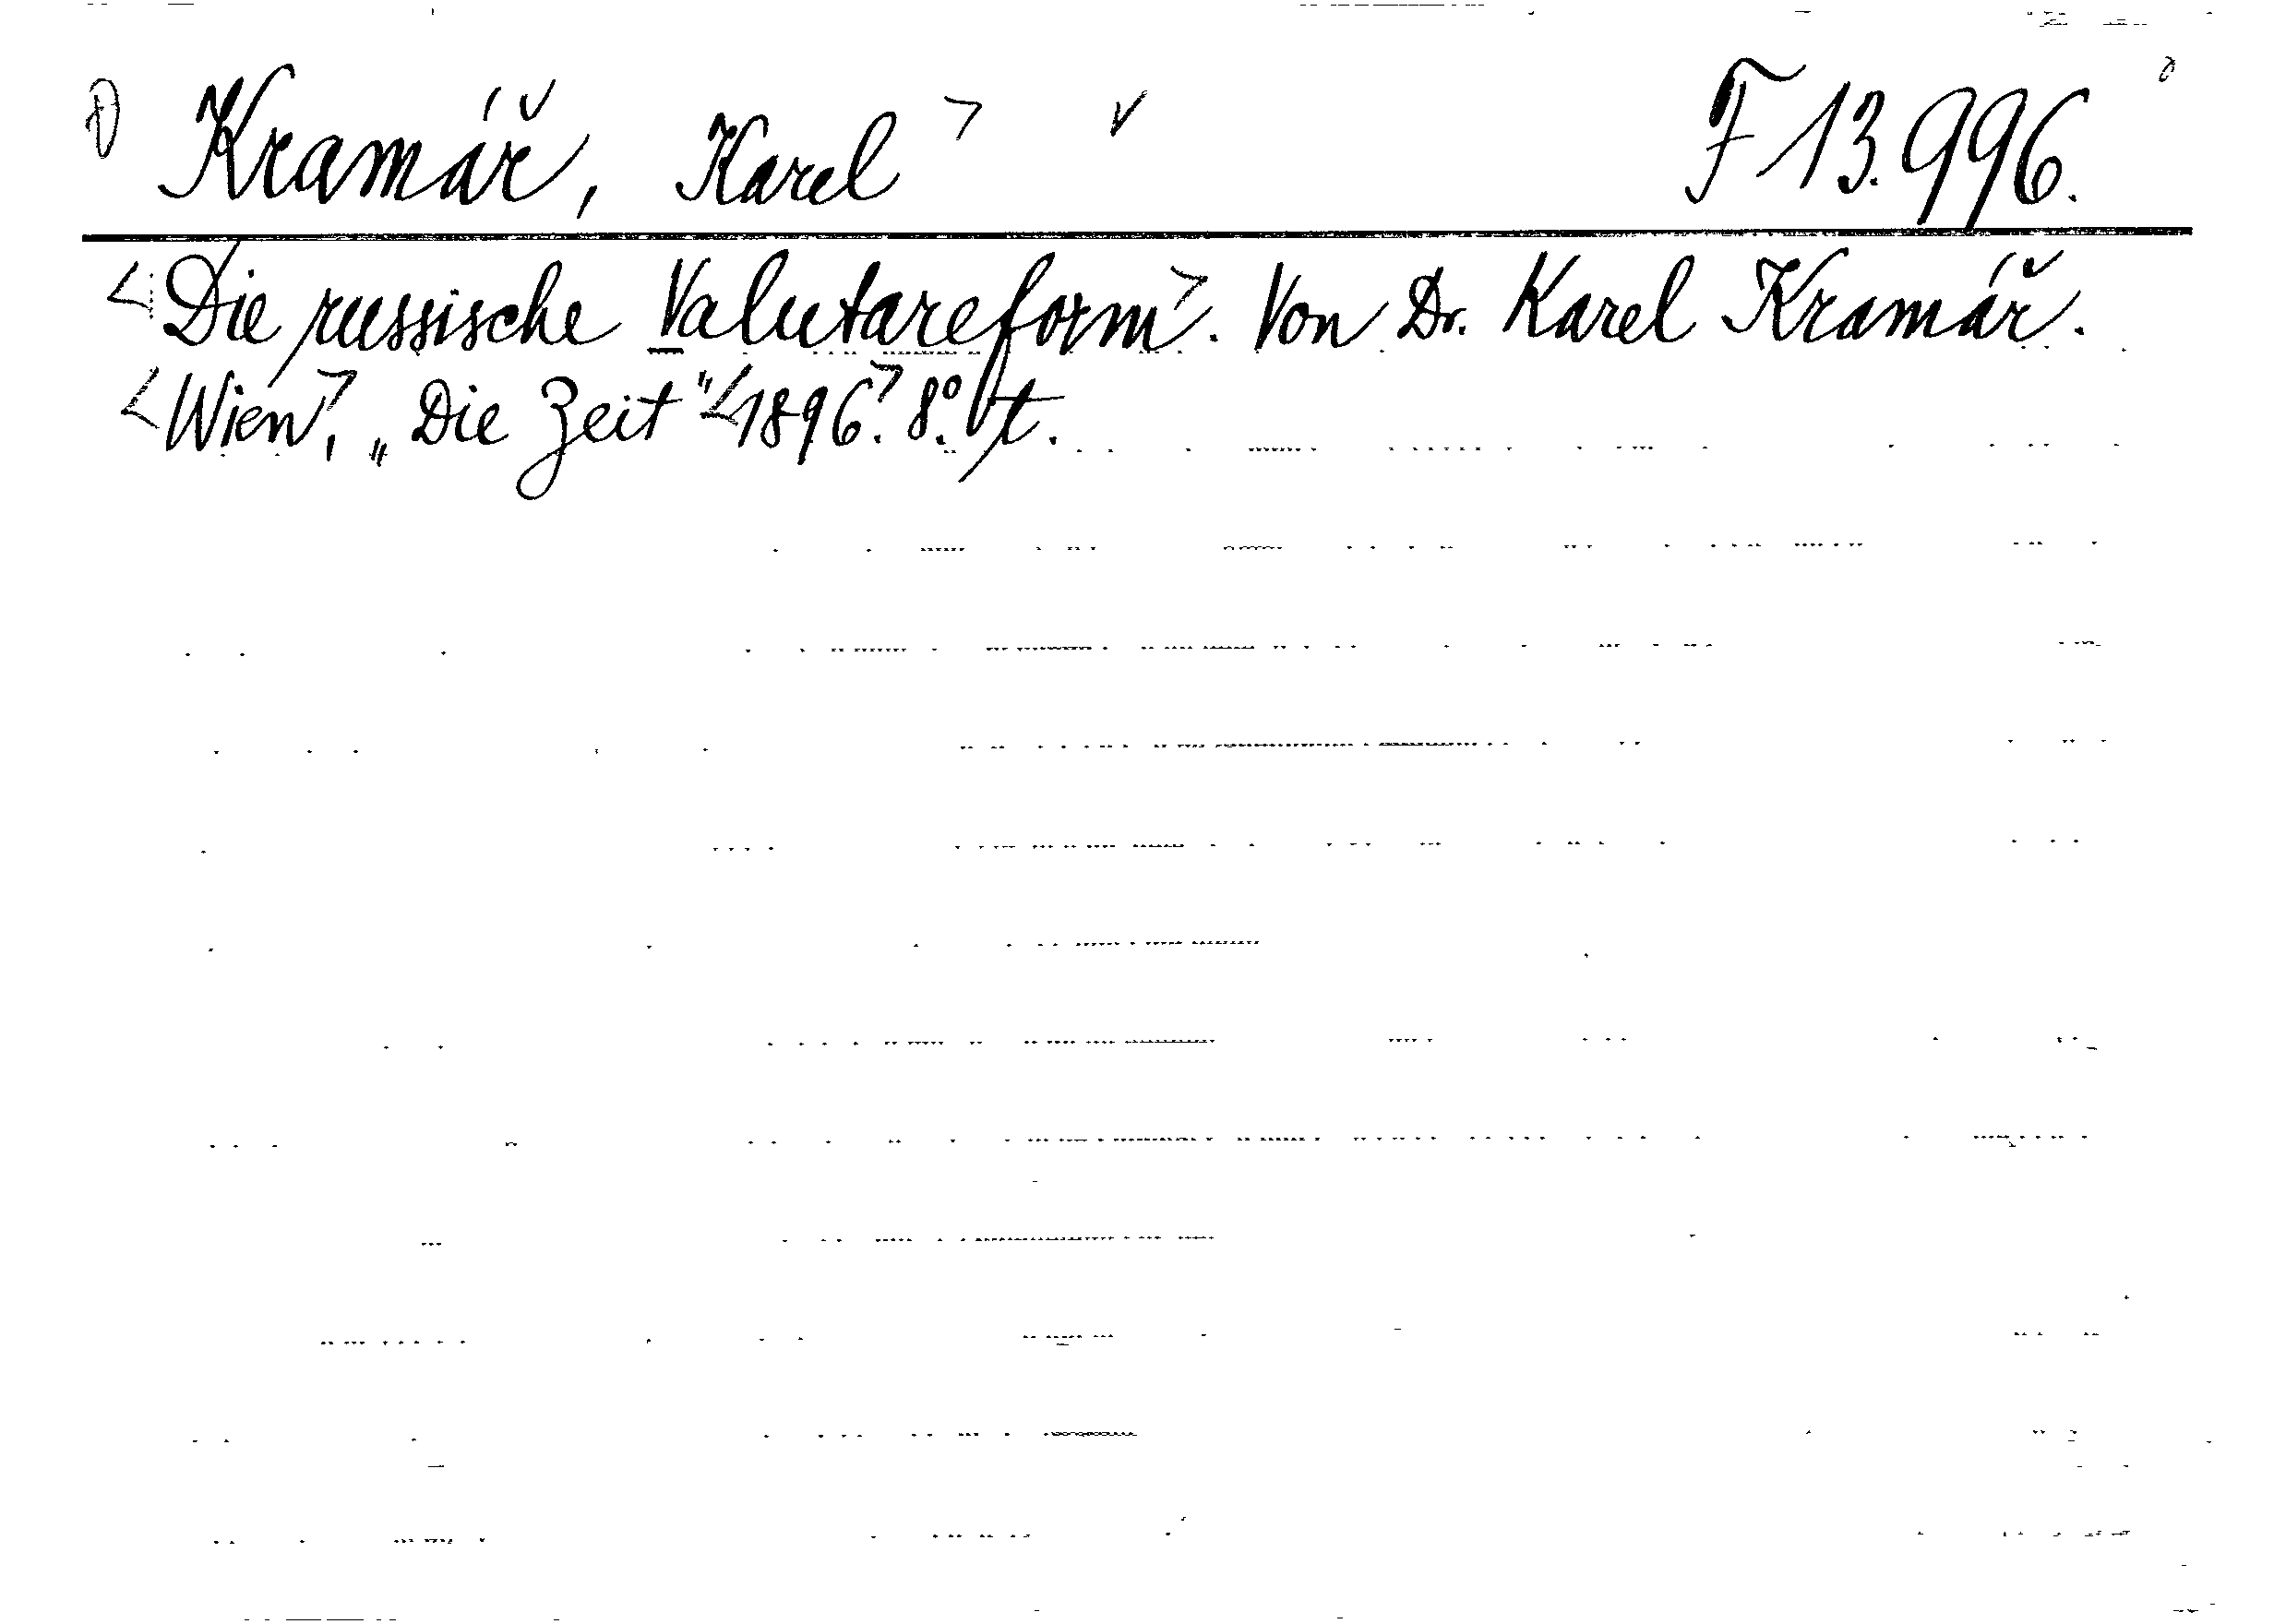 Kramář, Karel F 13.996.
Die russische Valutareform. Von Dr. Karel Kramář.
Wien, „Die Zeit“ 1896. 8.° t.